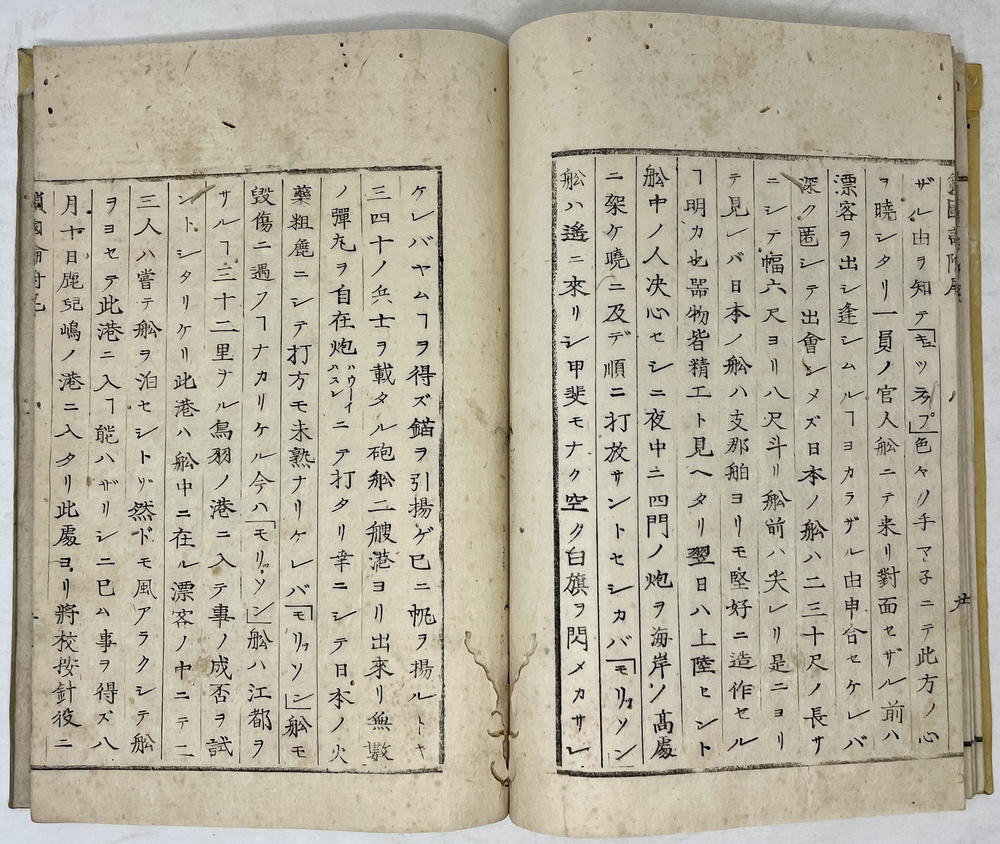 ザル由ヲ知テ「キツラプ」色々ノ手マ子ニテ此方ノ心
ヲ曉シタリ一員ノ官人舩ニテ来リ對面セザル前ハ
漂客ヲ出シ逢シムルヿヨカラザル由申合セケレバ
深ク匿シテ出會シメズ日本ノ舩ハ二三十尺ノ長サ
ニシテ幅六尺ヨリ八尺斗リ舩前ハ尖レリ是ニヨリ
テ見レバ日本ノ舩ハ支那舶ヨリモ堅好ニ造作セル
ヿ明カ也器物皆精工ト見ヘタリ翌日ハ上陸セント
舩中ノ人决心セシニ夜中ニ四門ノ炮ヲ海岸ソ髙處
ニ架ケ曉ニ及デ順ニ打放サントセシカバ「モリソン
舩ハ遙ニ來リシ甲斐モナク空ク白旗ヲ閃メカサレ
ケレバヤムヿヲ得ズ錨ヲ引揚ゲ已ニ帆ヲ揚ルトキ
三四十ノ兵士ヲ載タル砲舩二艘港ヨリ出來リ無數
ノ彈丸ヲ自在炮ハウーイハスンニテ打タリ幸ニシテ日本ノ火
藥粗麁ニシテ打方モ未熟ナリケレバ「モリソン」舩モ
毀傷ニ遇フヿナカリケル今ハ「モリソン」舩ハ江都ヲ
サルヿ三十二里ナル鳥羽ノ港ニ入テ事ノ成否ヲ試
ントシタリケリ此港ハ舩中ニ在ル漂客ノ中ニテ二
三人ハ嘗テ舩ヲ泊セシトゾ然ドモ風アラクシテ舩
ヲヨセテ此港ニ入ヿ能ハザリシニ已ム事ヲ得ズ八
月十日鹿兒嶋ノ港ニ入タリ此處ヨリ將校按針役ニ